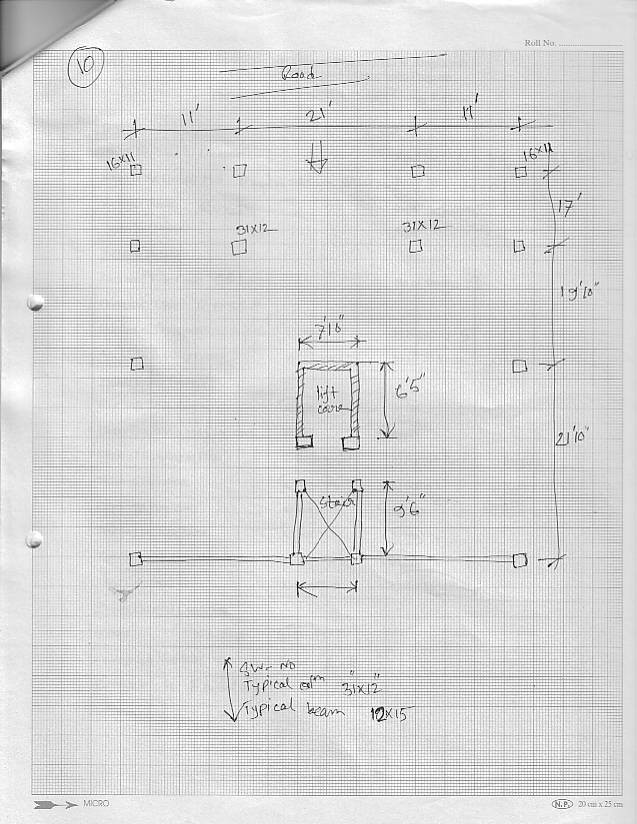 Roll No.
10
Road
11' 21' 11'
16X11 16X11
17'
31X12 31X12
19'10"
7'10"
lift
core
6'5"
21'10"
Stair
9'6"
SW- NO
Typical colm 31"x12"
Typical beam 12X15
MICRO N.P. 20 cm x 25 cm